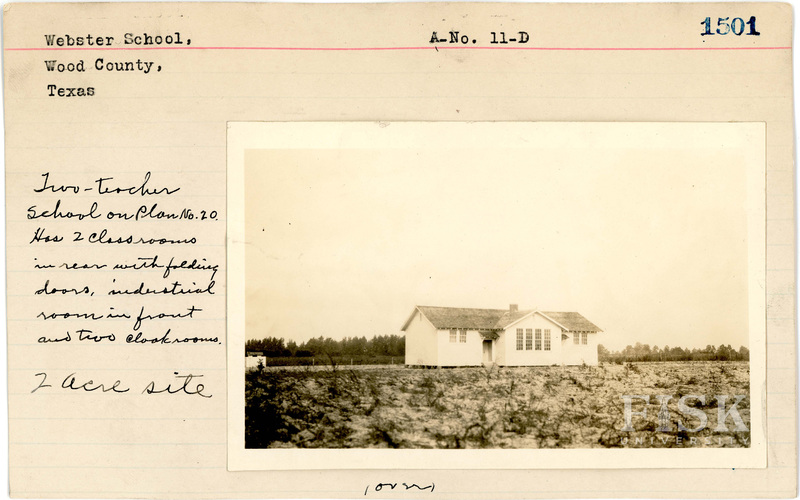 Webster School,
A-No. 11-D
1501
Wood County,
Texas
Two-teacher
School on Plan No. 20.
Has 2 classrooms
in rear with folding
doors, industrial
room in front
and two cloakrooms.
2 Acre site
FISK
UNIVERSITY
(over)